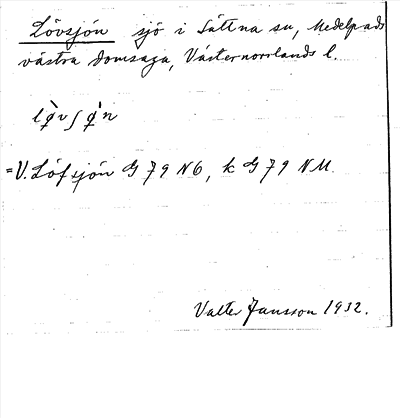 Lövsjön sjö i Sättna sn, Medelpads
västra domsaga, Västernorrlands l.
= V. Löfsjön G 79 NÖ, k G 79 NM.
Valter Jansson 1932.